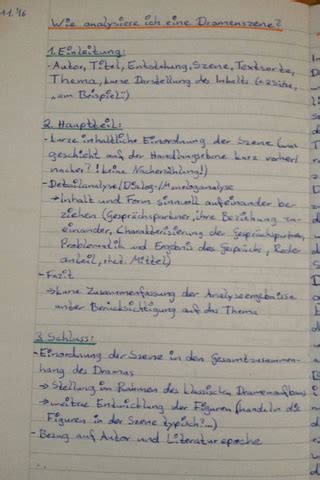 11. '16
Wie analysiere ich eine Dramenszene?
1. Einleitung:
- Autor, Titel, Entstehung, Szene, Textsorte,
Thema, kurze Darstellung des Inhalts
"am Beispiel")
2. Hauptteil:
- kurze inhaltliche Einordnung der Szene (was
geschieht auf der Handlungsebene kurz vorher/
nacher? ! keine Nacherzählung!)
- Detailanalyse/Dialog-/Monologanalyse
→ Inhalt und Form sinnvoll aufeinander be-
ziehen (Gesprächspartner, ihre Beziehung zu-
einander, Charakterisierung der Gesprächspartner,
Problematik und Ergebnis des Gesprächs, Rede-
anteil, rhet. Mittel)
- Fazit
→ kurze Zusammenfassung der Analyseergebnisse
unter Berücksichtigung auf das Thema
3. Schluss:
- Einordnung der Szene in den Gesamtzusammen-
hang des Dramas
→ Stellung im Rahmen des klassischen Dramenaufbaus
→ weitere Entwicklung der Figuren (handeln die
Figuren in der Szene typisch?...)
- Bezug auf Autor und Literaturepoche